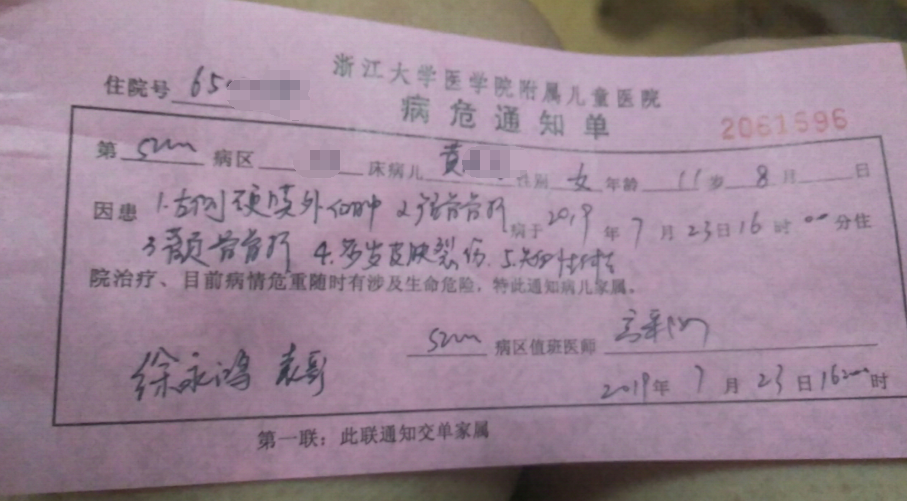 浙江大学医学院附属儿童医院
住院号 65
病危通知单
2061596
第 病区 床病儿 黄 性别 女 年龄 11岁 8月 日
因患 1.右侧硬膜外血肿 2. 骨骨折 病于2019年7月23日16时00分住
3. 骨骨折 4.多发皮肤裂伤. 5.
院治疗、目前病情危重随时有涉及生命危险,特此通知病儿家属。
病区值班医师
徐永鸿
2019年7月23日16 时
第一联:此联通知交单家属